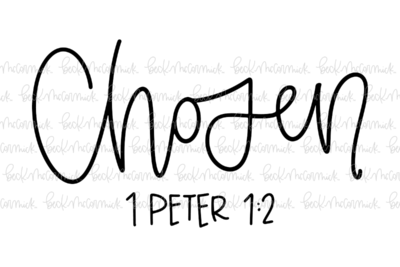 Chosen
1 PETER 1:2